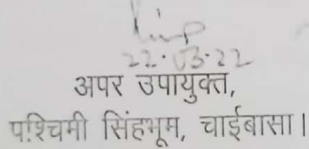 22.03.22
अपर उपायुक्त,
पश्चिमी सिंहभूम, चाईबासा।